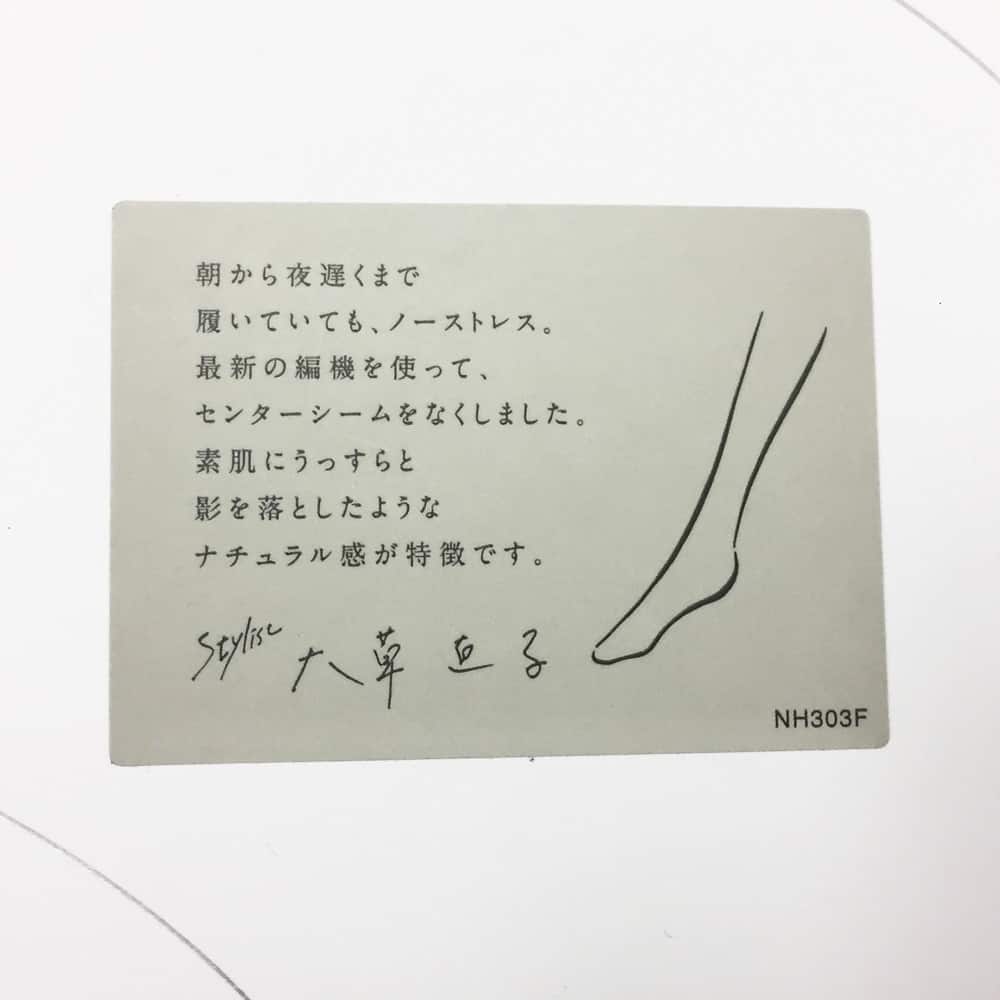 朝から夜遅くまで
履いていても、ノーストレス。
最新の編機を使って、
センターシームをなくしました。
素肌にうっすらと
影を落としたような
ナチュラル感が特徴です。
Stylist 大草直子
NH303F